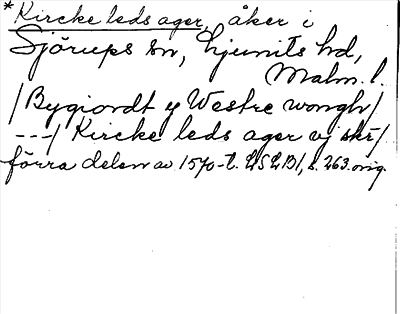 *Kircke leds ager, åker i
Sjörups sn, Ljunits hd,
Malm. l.
/Bygiordt y Westre wongh/
---/ Kircke leds ager vj ske/
förra delen av 1570-t. LSLB1, s. 263. orig.